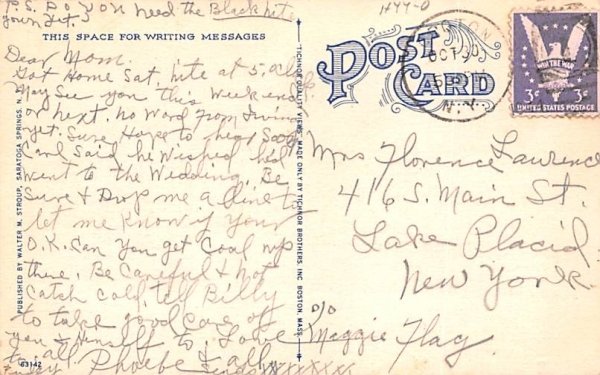 P.S. Do you need the Black hat
yours yet.
THIS SPACE FOR WRITING MESSAGES
Dear Mom.
Got Home Sat. nite at 5. o'clock
May See you this Week end
or next. No Word from Irving
yet. Sure Hope to hear Soon
Carl Said he Wished he'd
Went to the Wedding. Be
Sure & Drop me a line to
let me Know if your
O.K. Can You get Coal up
there. Be Careful & Not
Catch cold, tell Billy
to take good care of
you & Himself to. Love
to all Phoebe & all
XXXXXXX
PUBLISHED BY WALTER M. STROUP, SARATOGA SPRINGS, N.
63142
TICHNOR QUALITY VIEWS. MADE ONLY BY TICHNOR BROTHERS, INC. BOSTON, MASS.
POST CARD
OCT 30
N.Y.
WIN THE WAR
3¢ 3¢
UNITED STATES POSTAGE
Mrs Florence Lawrence
416 S. Main St.
Lake Placid
New York
c/o
Maggie Flag